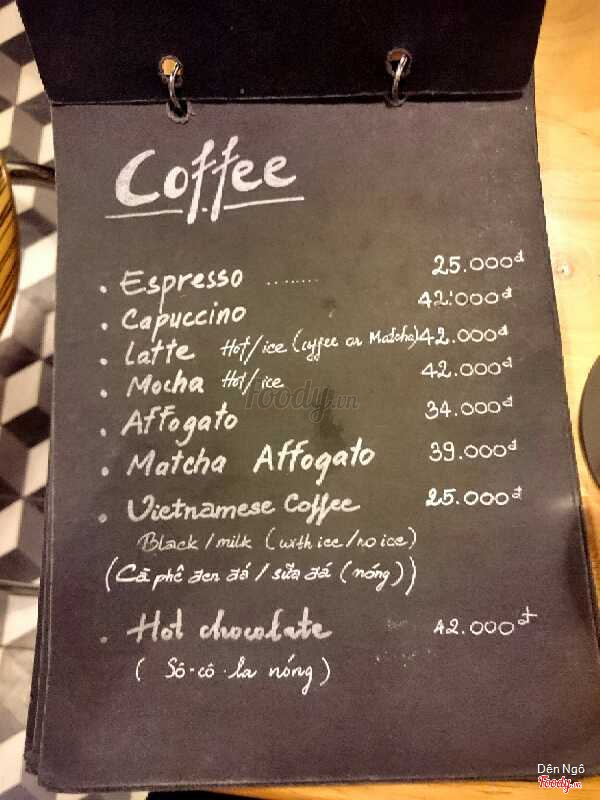 Coffee
• Espresso ........ 25.000đ
• Capuccino 42.000đ
• Latte Hot/ice (coffee or Matcha) 42.000đ
• Mocha Hot/ice 42.000đ
• Affogato 34.000đ
• Matcha Affogato 39.000đ
• Vietnamese Coffee 25.000đ
Black/milk (with ice/no ice)
(Cà phê đen đá/sữa đá (nóng))
• Hot chocolate 42.000đ
(Sô-cô-la nóng)
foody.vn
Dên Ngô
Foody.vn